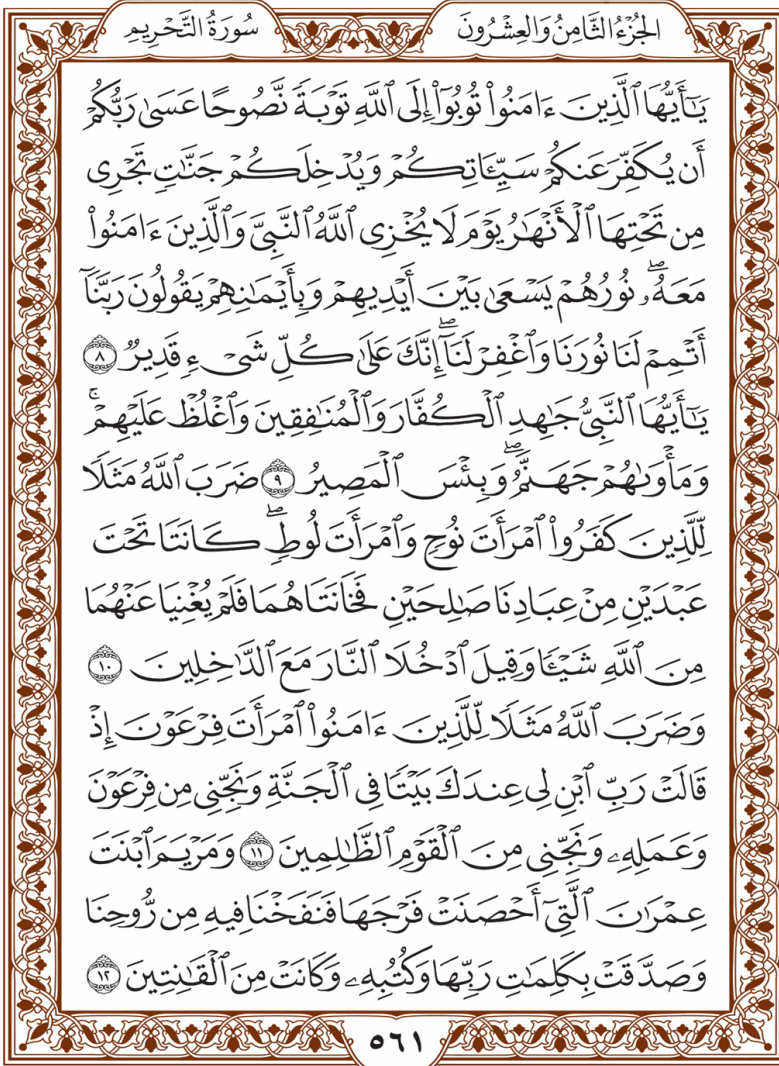 الجزء الثامن والعشرون
سورة التحريم
يَـٰٓأَيُّهَا ٱلَّذِينَ ءَامَنُوا۟ تُوبُوٓا۟ إِلَى ٱللَّهِ تَوْبَةً نَّصُوحًا عَسَىٰ رَبُّكُمْ
أَن يُكَفِّرَ عَنكُمْ سَيِّـَٔاتِكُمْ وَيُدْخِلَكُمْ جَنَّـٰتٍ تَجْرِى
مِن تَحْتِهَا ٱلْأَنْهَـٰرُ يَوْمَ لَا يُخْزِى ٱللَّهُ ٱلنَّبِىَّ وَٱلَّذِينَ ءَامَنُوا۟
مَعَهُۥۖ نُورُهُمْ يَسْعَىٰ بَيْنَ أَيْدِيهِمْ وَبِأَيْمَـٰنِهِمْ يَقُولُونَ رَبَّنَآ
أَتْمِمْ لَنَا نُورَنَا وَٱغْفِرْ لَنَآۖ إِنَّكَ عَلَىٰ كُلِّ شَىْءٍ قَدِيرٌ ٨
يَـٰٓأَيُّهَا ٱلنَّبِىُّ جَـٰهِدِ ٱلْكُفَّارَ وَٱلْمُنَـٰفِقِينَ وَٱغْلُظْ عَلَيْهِمْۚ
وَمَأْوَىٰهُمْ جَهَنَّمُۖ وَبِئْسَ ٱلْمَصِيرُ ٩ ضَرَبَ ٱللَّهُ مَثَلًا
لِّلَّذِينَ كَفَرُوا۟ ٱمْرَأَتَ نُوحٍ وَٱمْرَأَتَ لُوطٍۖ كَانَتَا تَحْتَ
عَبْدَيْنِ مِنْ عِبَادِنَا صَـٰلِحَيْنِ فَخَانَتَاهُمَا فَلَمْ يُغْنِيَا عَنْهُمَا
مِنَ ٱللَّهِ شَيْـًٔا وَقِيلَ ٱدْخُلَا ٱلنَّارَ مَعَ ٱلدَّٰخِلِينَ ١٠
وَضَرَبَ ٱللَّهُ مَثَلًا لِّلَّذِينَ ءَامَنُوا۟ ٱمْرَأَتَ فِرْعَوْنَ إِذْ
قَالَتْ رَبِّ ٱبْنِ لِى عِندَكَ بَيْتًا فِى ٱلْجَنَّةِ وَنَجِّنِى مِن فِرْعَوْنَ
وَعَمَلِهِۦ وَنَجِّنِى مِنَ ٱلْقَوْمِ ٱلظَّـٰلِمِينَ ١١ وَمَرْيَمَ ٱبْنَتَ
عِمْرَٰنَ ٱلَّتِىٓ أَحْصَنَتْ فَرْجَهَا فَنَفَخْنَا فِيهِ مِن رُّوحِنَا
وَصَدَّقَتْ بِكَلِمَـٰتِ رَبِّهَا وَكُتُبِهِۦ وَكَانَتْ مِنَ ٱلْقَـٰنِتِينَ ١٢
٥٦١